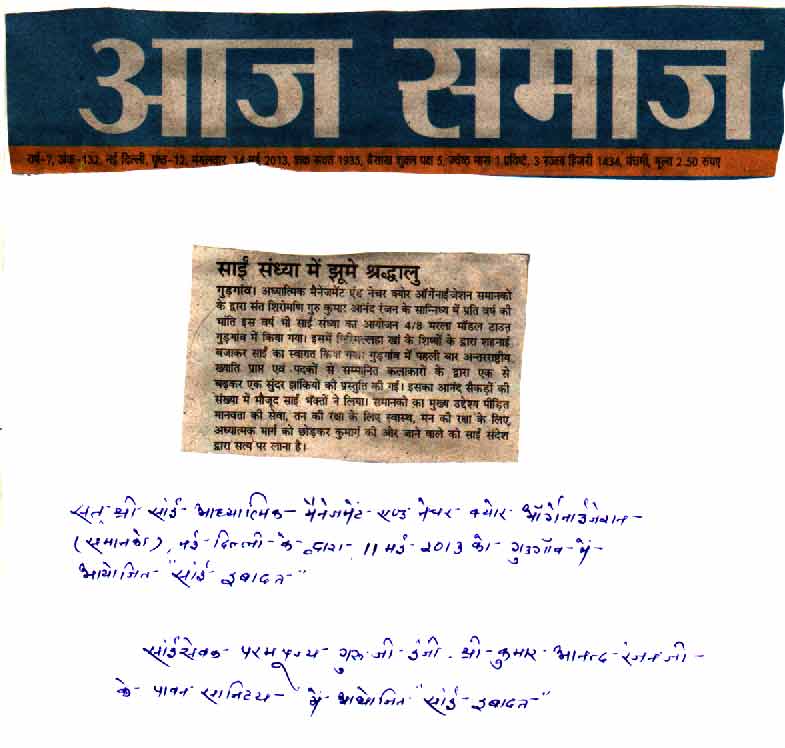 आज समाज
वर्ष-7, अंक-132, नई दिल्ली, पृष्ठ-12, मंगलवार 14 मई 2013, शक संवत 1935, बैसाख शुक्ल पक्ष 5, ज्येष्ठ मास 1 प्रविष्टे, 3 रज्जब हिजरी 1434, पंचमी, मूल्य 2.50 रुपए
साईं संध्या में झूमे श्रद्धालु
गुड़गांव। अध्यात्मिक मैनेजमेंट एंड नेचर क्योर ऑर्गेनाईजेशन समानको
के द्वारा संत शिरोमणि गुरु कुमार आनंद रंजन के सान्निध्य में प्रति वर्ष की
भांति इस वर्ष भी साईं संध्या का आयोजन 4/8 मरला मॉडल टाउन
गुड़गांव में किया गया। इसमें खां के शिष्यों के द्वारा शहनाई
बजाकर साईं का स्वागत किया गया। गुड़गांव में पहली बार अन्तरराष्ट्रीय
ख्याति प्राप्त एवं पदकों से सम्मानित कलाकारों के द्वारा एक से
बढ़कर एक सुंदर झांकियों की प्रस्तुति की गई। इसका आनंद सैकड़ों की
संख्या में मौजूद साईं भक्तों ने लिया। समानको का मुख्य उद्देश्य पीड़ित
मानवता की सेवा, तन की रक्षा के लिए स्वास्थ, मन की रक्षा के लिए,
अध्यात्मक मार्ग को छोड़कर कुमार्ग की ओर जाने वाले को साईं संदेश
द्वारा सत्य पर लाना है।
सत् श्री सांई आध्यात्मिक मैनेजमेंट एण्ड नेचर क्योर ऑर्गेनाईजेशन
(समानको), नई दिल्ली के द्वारा 11 मई 2013 को गुड़गाँव में
आयोजित "सांई इबादत"
सांईसेवक परमपूज्य गुरु जी इंजी. श्री कुमार आनन्द रंजन जी
के पावन सानिध्य में आयोजित "सांई इबादत"